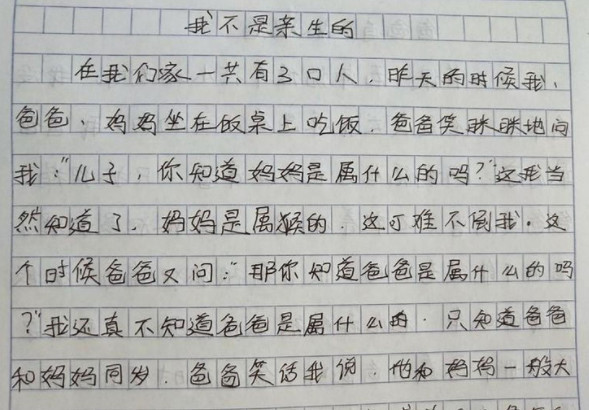 我不是亲生的
在我们家一共有3口人，昨天的时候我、
爸爸、妈妈坐在饭桌上吃饭，爸爸笑眯眯地问
我："儿子，你知道妈妈是属什么的吗？"这我当
然知道了，妈妈是属猴的，这可难不倒我。这
个时候爸爸又问："那你知道爸爸是属什么的吗
？"我还真不知道爸爸是属什么的，只知道爸爸
和妈妈同岁，爸爸笑话我说，他和妈妈一般大